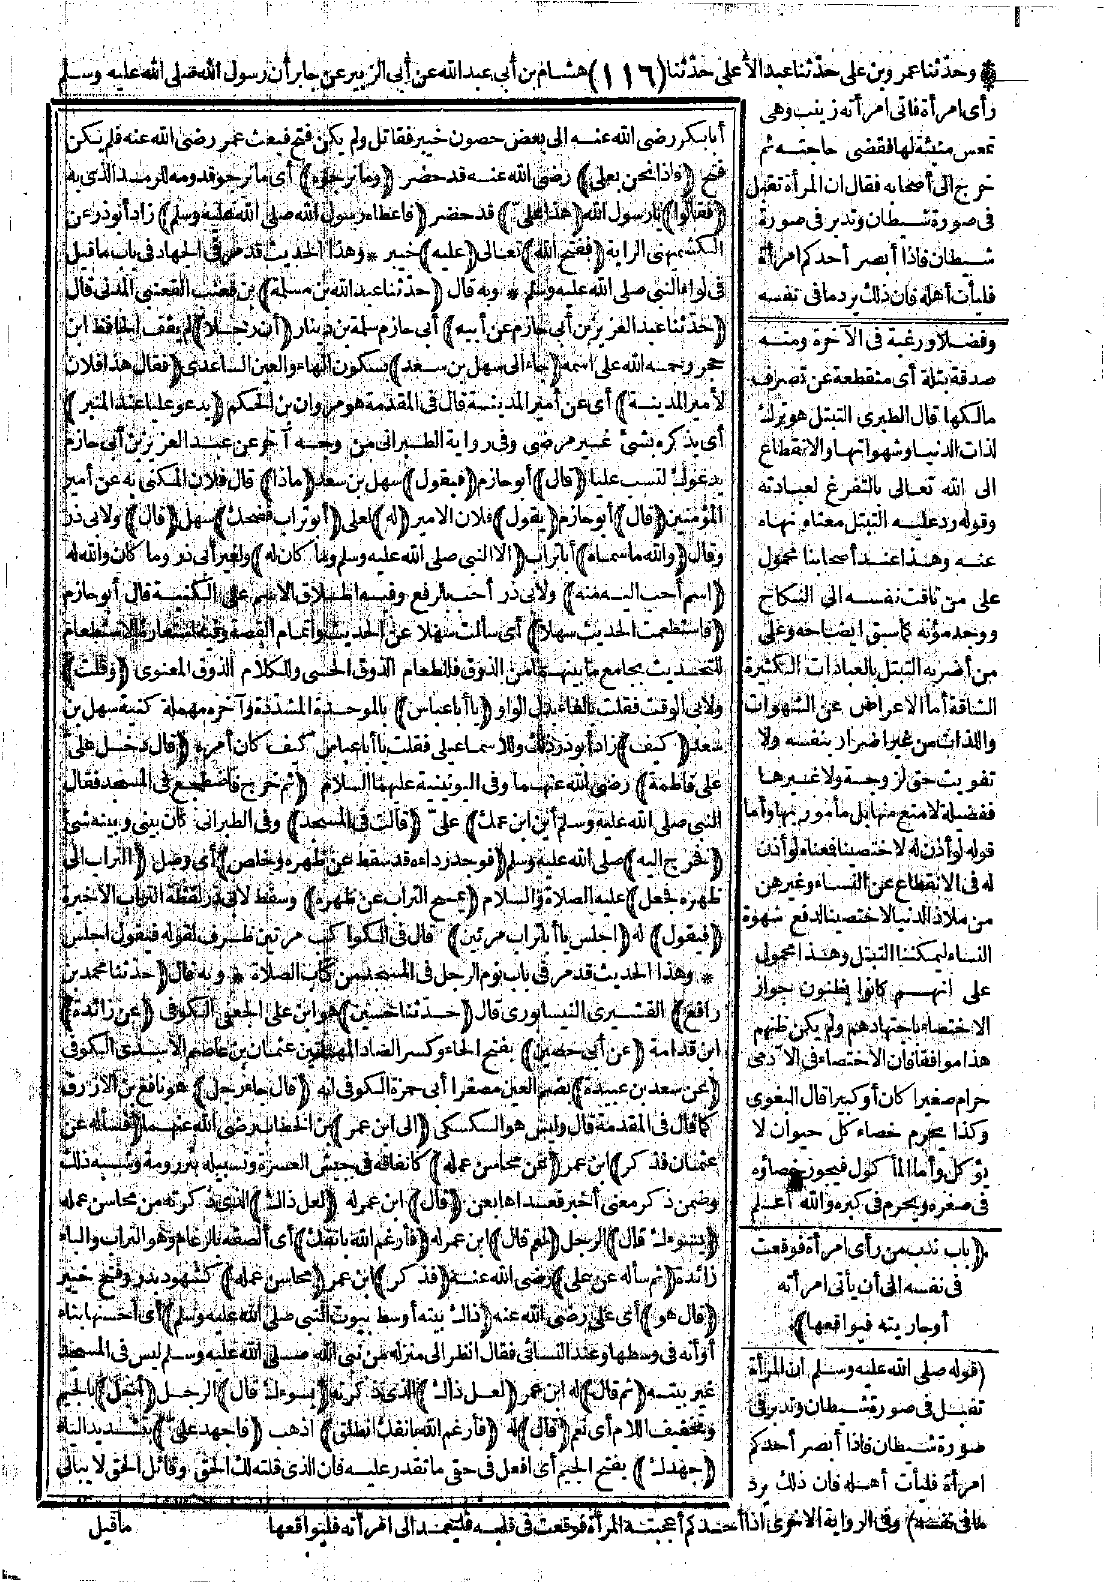 * وحدثنا عمرو بن على حدثنا عبد الأعلى حدثنا (١١٦) هشام بن أبى عبد الله عن أبى الزبير عن جابر أن رسول الله صلى الله عليه وسلم
رأى امرأة فأتى امرأته زينب وهى
تمعس منيئة لها فقضى حاجته ثم
خرج الى أصحابه فقال ان المرأة تقبل
فى صورة شيطان وتدبر فى صورة
شيطان فاذا أبصر أحدكم امرأة
فليأت أهله فان ذلك يرد ما فى نفسه
وفضلا ورغبة فى الآخرة ومنه
صدقة بتلة أى منقطعة عن تصرف
مالكها قال الطبرى التبتل هو ترك
لذات الدنيا وشهواتها والانقطاع
الى الله تعالى بالتفرغ لعبادته
وقوله رد عليه التبتل معناه نهاه
عنه وهذا عند أصحابنا محمول
على من تاقت نفسه الى النكاح
ووجد مؤنه كما سبق ايضاحه وعلى
من أضر به التبتل بالعبادات الكثيرة
الشاقة أما الاعراض عن الشهوات
واللذات من غير اضرار بنفسه ولا
تفويت حق لزوجة ولا غيرها
ففضيلة لا منع منها بل مأمور بها وأما
قوله لو أذن له لاختصينا فمعناه لو أذن
له فى الانقطاع عن النساء وغيرهن
من ملاذ الدنيا لاختصينا لدفع شهوة
النساء ليمكننا التبتل وهذا محمول
على انهم كانوا يظنون جواز
الاختصاء باجتهادهم ولم يكن ظنهم
هذا موافقا فان الاختصاء فى الآدمى
حرام صغيرا كان أو كبيرا قال البغوى
وكذا يحرم خصاء كل حيوان لا
يؤكل وأما المأكول فيجوز خصاؤه
فى صغره ويحرم فى كبره والله أعلم
﴿باب ندب من رأى امرأة فوقعت
فى نفسه الى أن يأتى امرأته
أو جاريته فيواقعها﴾
(قوله صلى الله عليه وسلم ان المرأة
تقبل فى صورة شيطان وتدبر فى
صورة شيطان فاذا أبصر أحدكم
امرأة فليأت أهله فان ذلك يرد
ما فى نفسه) وفى الرواية الاخرى اذا أحدكم أعجبته المرأة فوقعت فى قلبه فليعمد الى امرأته فليواقعها
أبا بكر رضى الله عنه الى بعض حصون خيبر فقاتل ولم يكن فتح فبعث عمر رضى الله عنه فلم يكن
فتح (فاذا نحن بعلى) رضى الله عنه قد حضر (وما نرجوه) أى ما نرجو قدومه للرمد الذى به
(فقالوا) يا رسول الله (هذا على) قد حضر (فأعطاه رسول الله صلى الله عليه وسلم) زاد أبو ذر عن
الكشميهنى الراية (ففتح الله) تعالى (عليه) خيبر * وهذا الحديث قد مر فى الجهاد فى باب ما قيل
فى لواء النبى صلى الله عليه وسلم * وبه قال (حدثنا عبد الله بن مسلمة) بن قعنب القعنبى المدنى قال
(حدثنا عبد العزيز بن أبى حازم عن أبيه) أبى حازم سلمة بن دينار (أن رجلا) لم يقف الحافظ ابن
حجر رحمه الله على اسمه (جاء الى سهل بن سعد) بسكون الهاء والعين الساعدى (فقال هذا فلان
لأمير المدينة) أى عن أمير المدينة قال فى المقدمة هو مروان بن الحكم (يدعو عليا عند المنبر)
أى يذكره بشئ غير مرضى وفى رواية الطبرانى من وجه آخر عن عبد العزيز بن أبى حازم
يدعوك لتسب عليا (قال) أبو حازم (فيقول) سهل بن سعد (ماذا) قال فلان المكنى به عن أمير
المؤمنين (قال) أبو حازم (يقول) فلان الامير (له) لعلى (أبو تراب فضحك) سهل (قال) ولابى ذر
وقال (والله ما سماه) أبا تراب (الا النبى صلى الله عليه وسلم وما كان له) ولغير أبى ذر وما كان والله له
(اسم أحب اليه منه) ولابى ذر أحب بالرفع وفيه اطلاق الاسم على الكنية قال أبو حازم
(فاستطعمت الحديث سهلا) أى سألت سهلا عن الحديث واتمام القصة وفيه استعارة الاستطعام
للتحديث بجامع ما بينهما من الذوق فللطعام الذوق الحسى وللكلام الذوق المعنوى (وقلت)
ولابى الوقت فقلت بالفاء بدل الواو (يا أبا عباس) بالموحدة المشددة وآخره مهملة كنية سهل بن
سعد (كيف) زاد أبو ذر ذلك وللاسماعيلى فقلت يا أبا عباس كيف كان أمره (قال دخل على
على فاطمة) رضى الله عنهما وفى اليونينية عليهما السلام (ثم خرج فاضطجع فى المسجد فقال
النبى صلى الله عليه وسلم أين ابن عمك) على (قالت فى المسجد) وفى الطبرانى كان بينى وبينه شئ
(فخرج اليه) صلى الله عليه وسلم (فوجد رداءه قد سقط عن ظهره وخلص) أى وصل (التراب الى
ظهره فجعل) عليه الصلاة والسلام (يمسح التراب عن ظهره) وسقط لابى ذر لفظة التراب الاخيرة
(فيقول) له (اجلس يا أبا تراب مرتين) قال فى الكواكب مرتين ظرف لقوله فيقول اجلس
* وهذا الحديث قد مر فى باب نوم الرجل فى المسجد من كتاب الصلاة * وبه قال (حدثنا محمد بن
رافع) القشيرى النيسابورى قال (حدثنا حسين) هو ابن على الجعفى الكوفى (عن زائدة)
ابن قدامة (عن أبى حصين) بفتح الحاء وكسر الصاد المهملتين عثمان بن عاصم الاسدى الكوفى
(عن سعد بن عبيدة) بضم العين مصغرا أبى حمزة الكوفى انه (قال جاء رجل) هو نافع بن الازرق
كما قال فى المقدمة قال وليس هو السكسكى (الى ابن عمر) بن الخطاب رضى الله عنهما (فسأله عن
عثمان فذكر) ابن عمر (عن محاسن عمله) كانفاقه فى جيش العسرة وتسبيله بئر رومة وشبه ذلك
وضمن ذكر معنى أخبر فعداها بعن (قال) ابن عمر له (لعل ذاك) الذى ذكرته من محاسن عمله
(يسوءك قال) الرجل (نعم قال) ابن عمر له (فأرغم الله بأنفك) أى ألصقه بالرغام وهو التراب والباء
زائدة (ثم سأله عن على) رضى الله عنه (فذكر) ابن عمر (محاسن عمله) كشهود بدر وفتح خيبر
(قال هو) أى على رضى الله عنه (ذاك بيته أوسط بيوت النبى صلى الله عليه وسلم) أى أحسنها بناء
أو أنه فى وسطها وعند النسائى فقال انظر الى منزله من نبى الله صلى الله عليه وسلم ليس فى المسجد
غير بيته (ثم قال) له ابن عمر (لعل ذاك) الذى ذكرته (يسوءك قال) الرجل (أجل) بالجيم
وتخفيف اللام أى نعم (قال) له (فأرغم الله بأنفك انطلق) اذهب (فاجهد على) بتشديد الياء
(جهدك) بفتح الجيم أى افعل فى حقى ما تقدر عليه فان الذى قلته لك الحق وقائل الحق لا يبالى
ما قيل